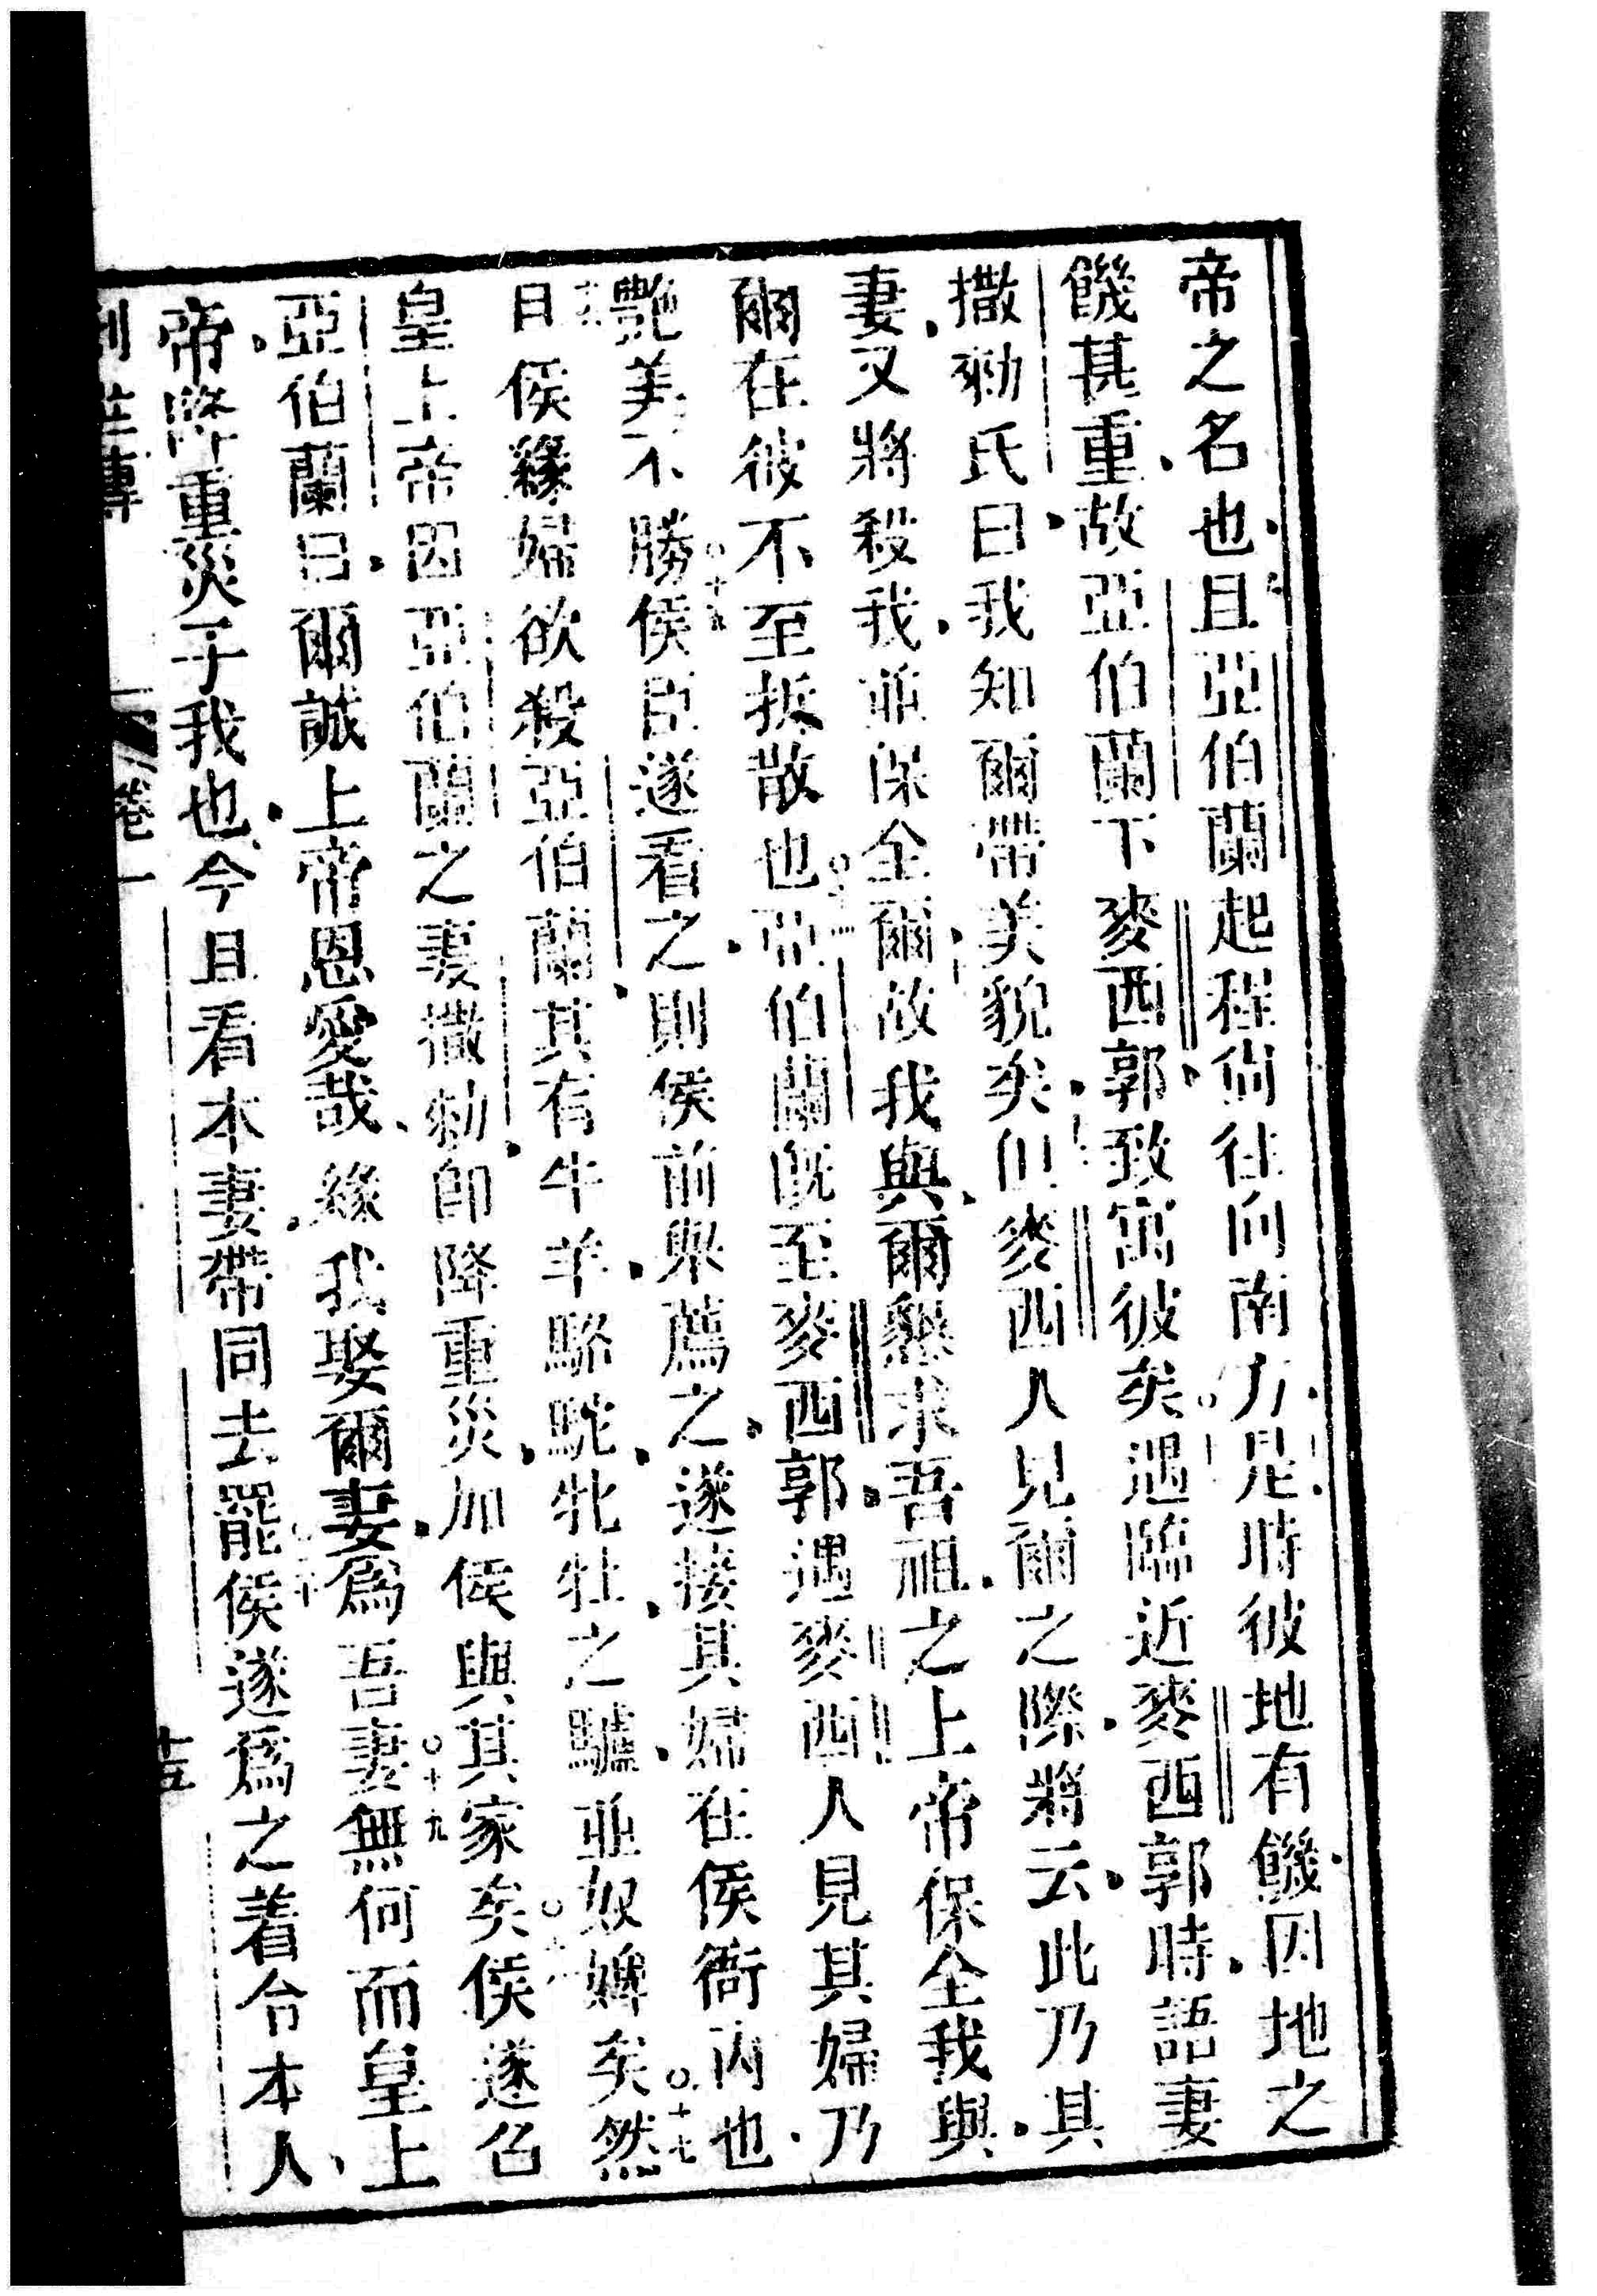 帝之名也且亞伯蘭起程尙往向南方是時彼地有饑因地之
饑甚重故亞伯蘭下麥西郭致寓彼矣遇臨近麥西郭時語妻
撒勑氏曰我知爾帶美貌矣但麥西人見爾之際將云此乃其
妻又將殺我並保全爾故我與爾懇求吾祖之上帝保全我與
爾在彼不至拆散也亞伯蘭既至麥西郭遇麥西人見其婦乃
艷美不勝侯臣遂看之則侯前舉薦之遂接其婦在侯衙內也
且侯緣婦欲殺亞伯蘭其有牛羊駱駝牝牡之驢並奴婢矣然
皇上帝因亞伯蘭之妻撒勑即降重災加侯與其家矣侯遂召
亞伯蘭曰爾誠上帝恩愛哉緣我娶爾妻爲吾妻無何而皇上
帝降重災于我也今且看本妻帶同去罷侯遂爲之着令本人
創世傳 卷一 十五